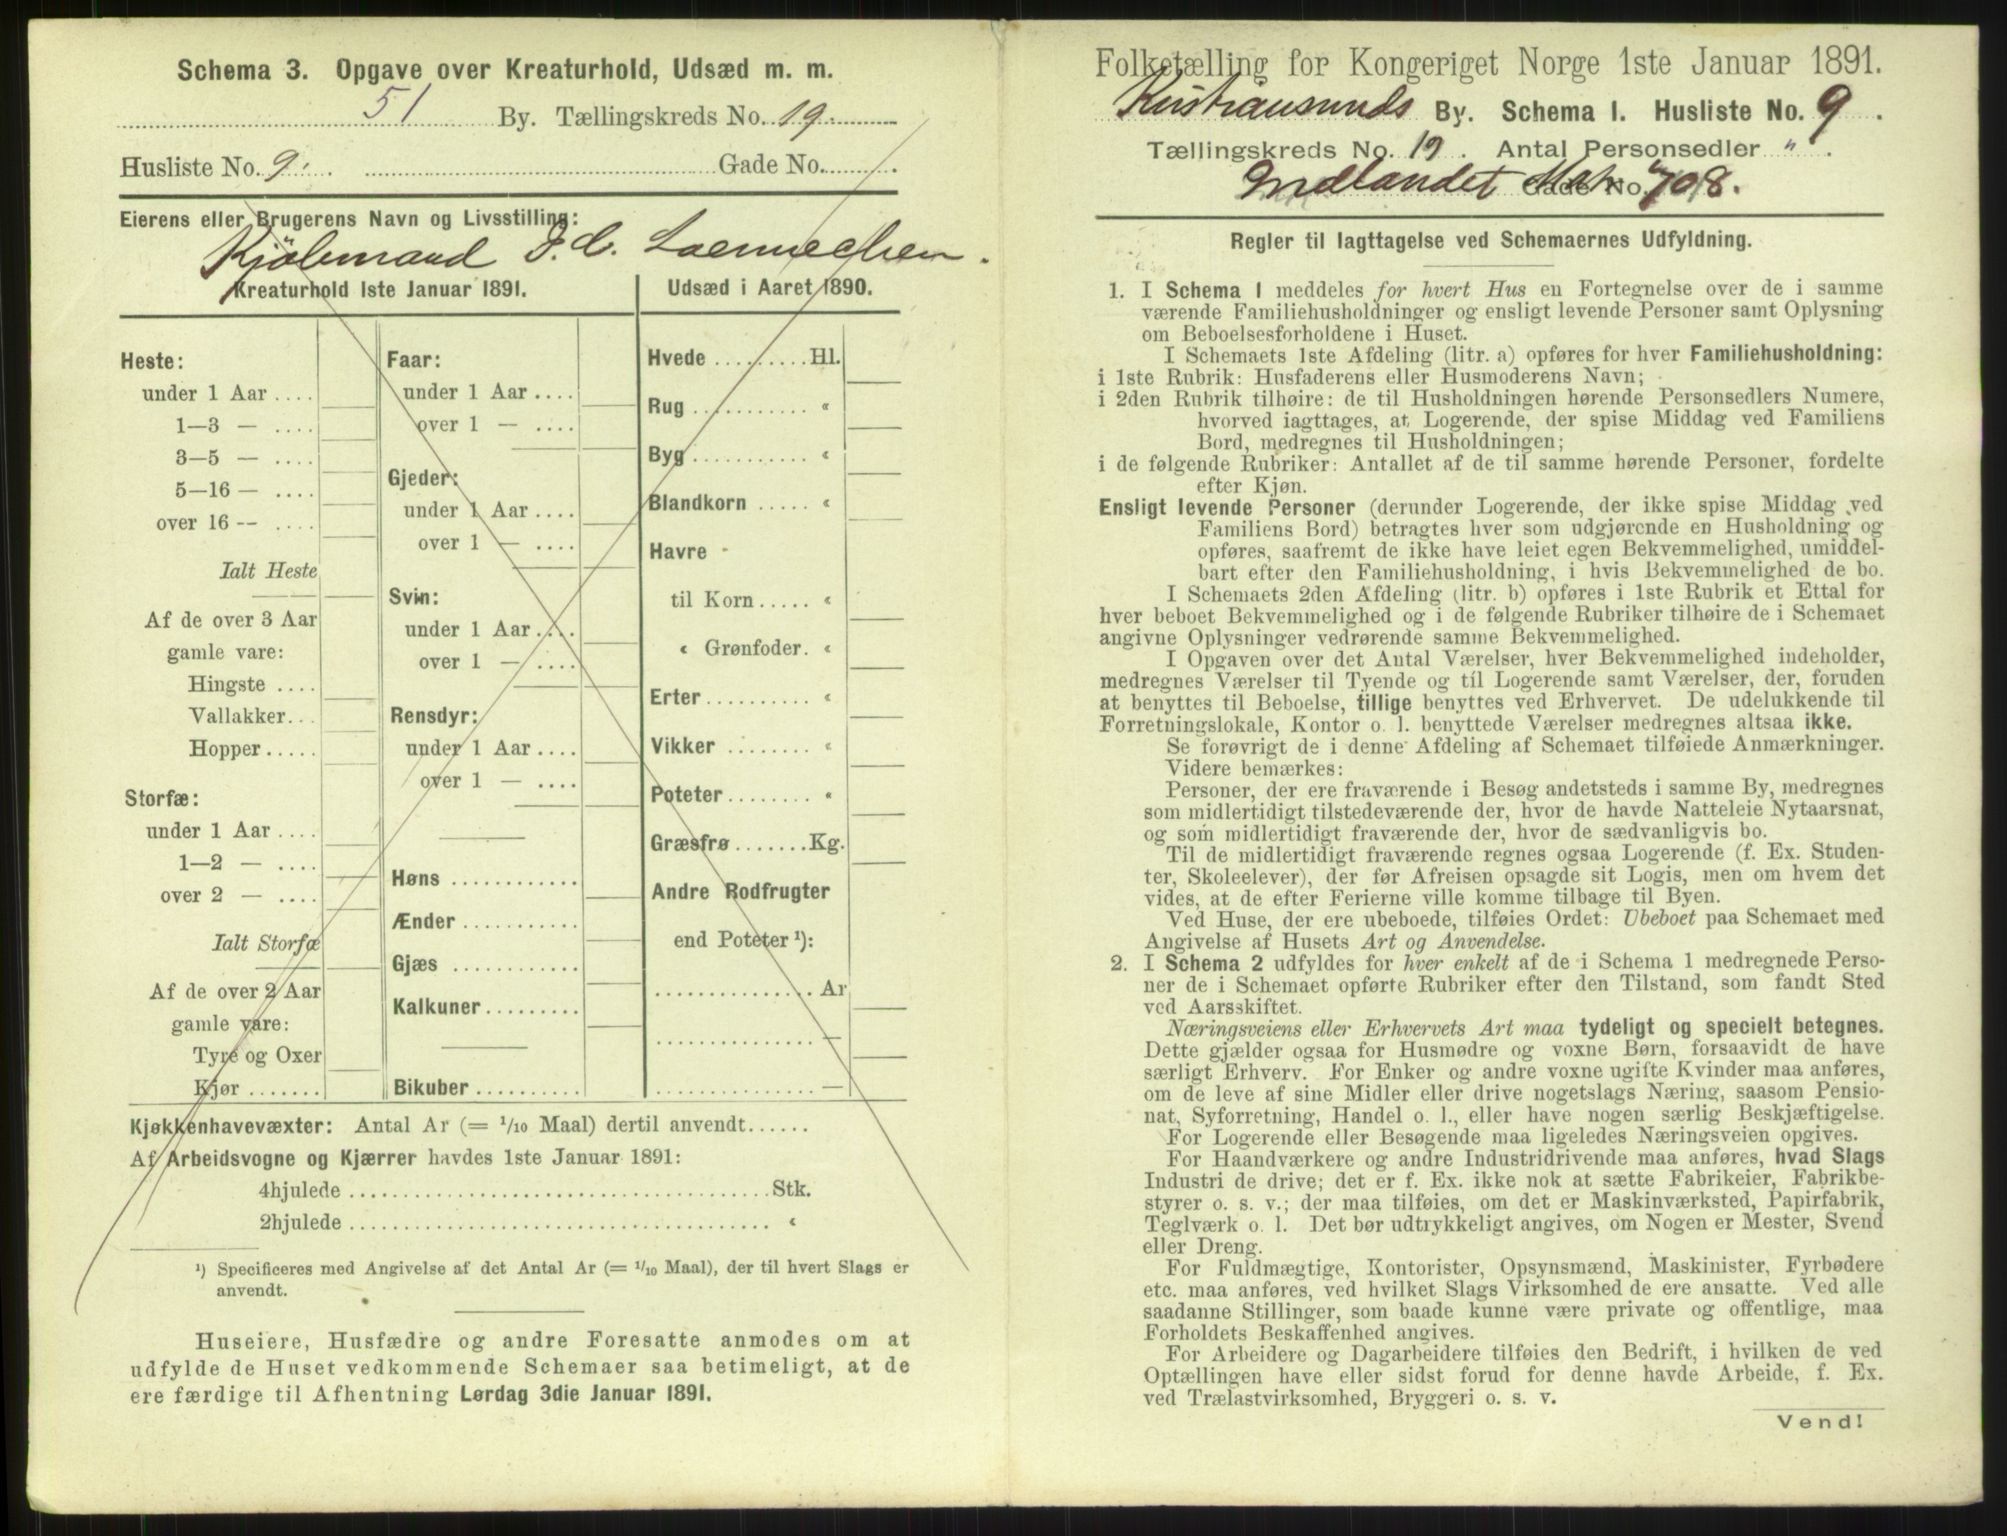 Schema 3. Opgave over Kreaturhold, Udsæd m. m.
51 By. Tællingskreds No. 19.
Husliste No. 9. Gade No.
Eierens eller Brugerens Navn og Livsstilling:
Kjöbmand J. C.
Kreaturhold 1ste Januar 1891.
Heste:
under 1 Aar ....
1—3 — ....
3—5 — ....
5—16 — ....
over 16 -- ....
Ialt Heste
Af de over 3 Aar
gamle vare:
Hingste ....
Vallakker...
Hopper.....
Storfæ:
under 1 Aar ....
1—2 — ....
over 2 — ....
Ialt Storfæ
Af de over 2 Aar
gamle vare:
Tyre og Oxer
Kjør .......
Faar:
under 1 Aar ....
over 1 — ....
Gjeder:
under 1 Aar ....
over 1 — ....
Svin:
under 1 Aar ....
over 1 — ....
Rensdyr:
under 1 Aar ....
over 1 — ....
Høns ............
Ænder ...........
Gjæs ............
Kalkuner.........
Bikuber ..........
Udsæd i Aaret 1890.
Hvede .........Hl.
Rug ........... «
Byg............ «
Blandkorn ..... «
Havre
til Korn..... «
« Grønfoder. «
Erter.......... «
Vikker ........ «
Poteter........ «
Græsfrø.......Kg.
Andre Rodfrugter
end Poteter ¹):
............... Ar
............... —
............... —
Kjøkkenhavevæxter: Antal Ar (= 1/10 Maal) dertil anvendt......
Af Arbeidsvogne og Kjærrer havdes 1ste Januar 1891:
4hjulede ........................................ Stk.
2hjulede ........................................ «
¹) Specificeres med Angivelse af det Antal Ar (= 1/10 Maal), der til hvert Slags er
anvendt.
Huseiere, Husfædre og andre Foresatte anmodes om at
udfylde de Huset vedkommende Schemaer saa betimeligt, at de
ere færdige til Afhentning Lørdag 3die Januar 1891.
Folketælling for Kongeriget Norge 1ste Januar 1891.
Kristiansunds By. Schema I. Husliste No. 9.
Tællingskreds No. 19. Antal Personsedler „ .
Indlandet Mat. Gade No. 708.
Regler til Iagttagelse ved Schemaernes Udfyldning.
1. I Schema 1 meddeles for hvert Hus en Fortegnelse over de i samme
værende Familiehusholdninger og ensligt levende Personer samt Oplysning
om Beboelsesforholdene i Huset.
I Schemaets 1ste Afdeling (litr. a) opføres for hver Familiehusholdning:
i 1ste Rubrik: Husfaderens eller Husmoderens Navn;
i 2den Rubrik tilhøire: de til Husholdningen hørende Personsedlers Numere,
hvorved iagttages, at Logerende, der spise Middag ved Familiens
Bord, medregnes til Husholdningen;
i de følgende Rubriker: Antallet af de til samme hørende Personer, fordelte
efter Kjøn.
Ensligt levende Personer (derunder Logerende, der ikke spise Middag ved
Familiens Bord) betragtes hver som udgjørende en Husholdning og
opføres, saafremt de ikke have leiet egen Bekvemmelighed, umiddel-
bart efter den Familiehusholdning, i hvis Bekvemmelighed de bo.
I Schemaets 2den Afdeling (litr. b) opføres i 1ste Rubrik et Ettal for
hver beboet Bekvemmelighed og i de følgende Rubriker tilhøire de i Schemaet
angivne Oplysninger vedrørende samme Bekvemmelighed.
I Opgaven over det Antal Værelser, hver Bekvemmelighed indeholder,
medregnes Værelser til Tyende og til Logerende samt Værelser, der, foruden
at benyttes til Beboelse, tillige benyttes ved Erhvervet. De udelukkende til
Forretningslokale, Kontor o. l. benyttede Værelser medregnes altsaa ikke.
Se forøvrigt de i denne Afdeling af Schemaet tilføiede Anmærkninger.
Videre bemærkes:
Personer, der ere fraværende i Besøg andetsteds i samme By, medregnes
som midlertidigt tilstedeværende der, hvor de havde Natteleie Nytaarsnat,
og som midlertidigt fraværende der, hvor de sædvanligvis bo.
Til de midlertidigt fraværende regnes ogsaa Logerende (f. Ex. Studen-
ter, Skoleelever), der før Afreisen opsagde sit Logis, men om hvem det
vides, at de efter Ferierne ville komme tilbage til Byen.
Ved Huse, der ere ubeboede, tilføies Ordet: Ubeboet paa Schemaet med
Angivelse af Husets Art og Anvendelse.
2. I Schema 2 udfyldes for hver enkelt af de i Schema 1 medregnede Perso-
ner de i Schemaet opførte Rubriker efter den Tilstand, som fandt Sted
ved Aarsskiftet.
Næringsveiens eller Erhvervets Art maa tydeligt og specielt betegnes.
Dette gjælder ogsaa for Husmødre og voxne Børn, forsaavidt de have
særligt Erhverv. For Enker og andre voxne ugifte Kvinder maa anføres,
om de leve af sine Midler eller drive nogetslags Næring, saasom Pensio-
nat, Syforretning, Handel o. l., eller have nogen særlig Beskjæftigelse.
For Logerende eller Besøgende maa ligeledes Næringsveien opgives.
For Haandværkere og andre Industridrivende maa anføres, hvad Slags
Industri de drive; det er f. Ex. ikke nok at sætte Fabrikeier, Fabrikbe-
styrer o. s. v.; der maa tilføies, om det er Maskinværksted, Papirfabrik,
Teglværk o. l. Det bør udtrykkeligt angives, om Nogen er Mester, Svend
eller Dreng.
For Fuldmægtige, Kontorister, Opsynsmænd, Maskinister, Fyrbødere
etc. maa anføres, ved hvilket Slags Virksomhed de ere ansatte. Ved alle
saadanne Stillinger, som baade kunne være private og offentlige, maa
Forholdets Beskaffenhed angives.
For Arbeidere og Dagarbeidere tilføies den Bedrift, i hvilken de ved
Optællingen have eller sidst forud for denne havde Arbeide, f. Ex.
ved Trælastvirksomhed, Bryggeri o. s. v.
Vend!